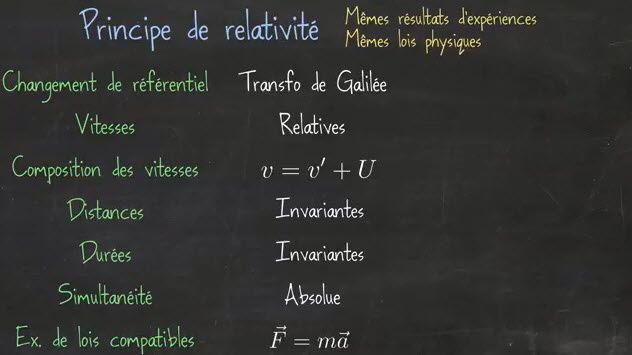 Principe de relativité
Mêmes résultats d'expériences
Mêmes lois physiques
Changement de référentiel Transfo de Galilée
Vitesses Relatives
Composition des vitesses v = v' + U
Distances Invariantes
Durées Invariantes
Simultanéité Absolue
Ex. de lois compatibles F⃗ = ma⃗